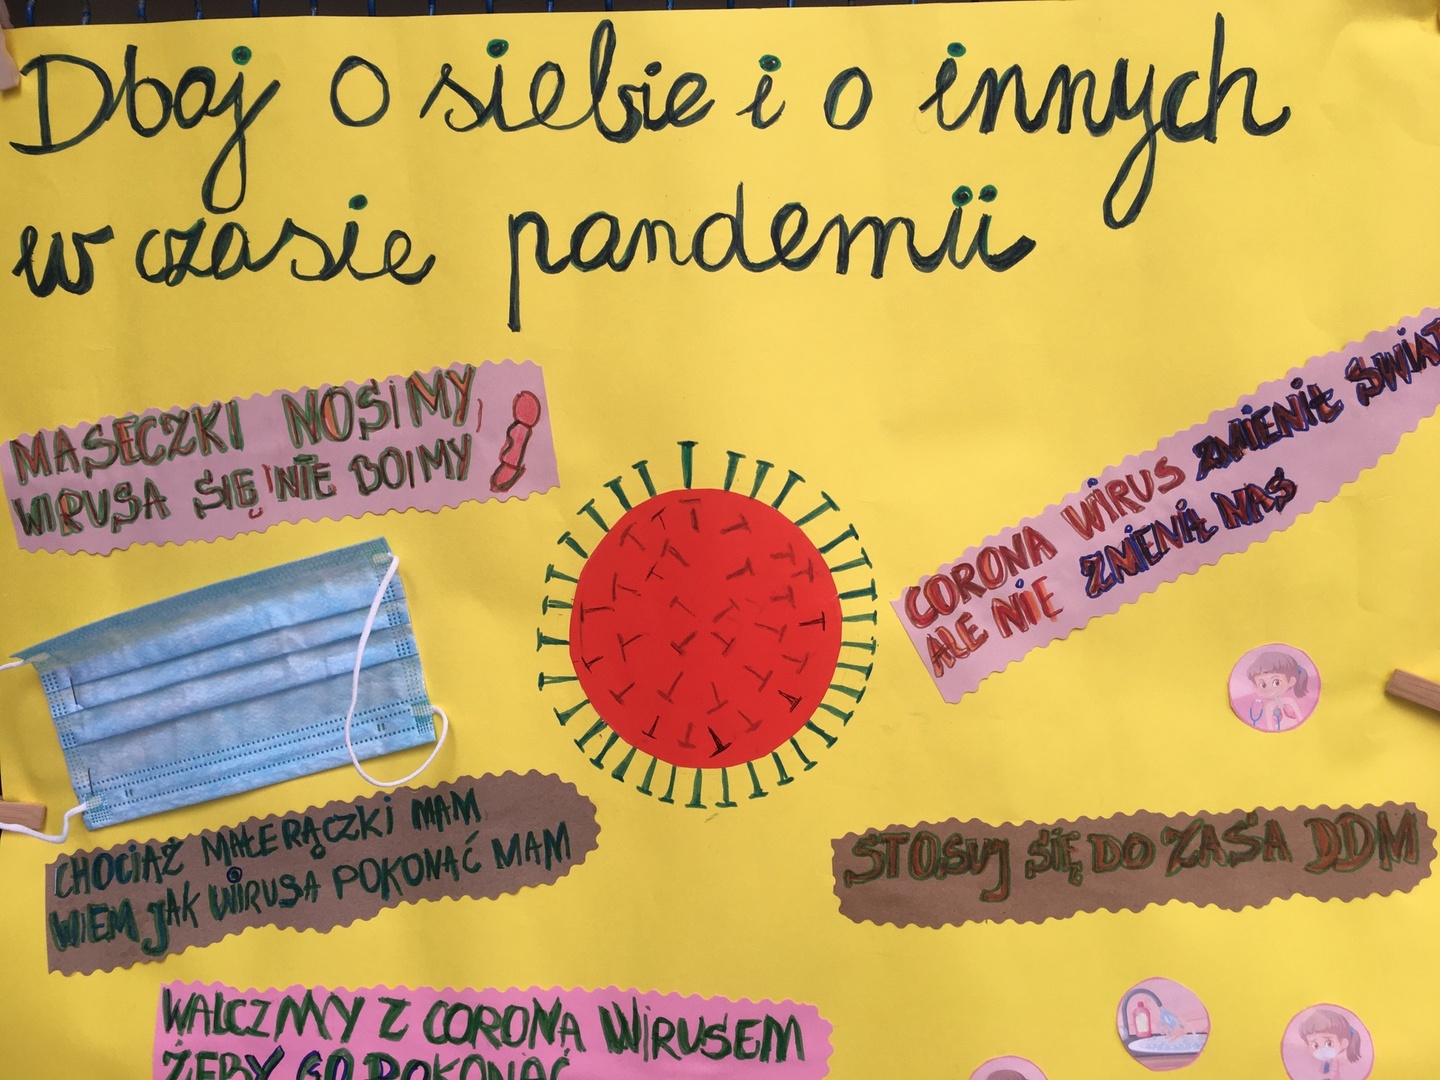 Dbaj o siebie i o innych
w czasie pandemii
MASECZKI NOSIMY,
WIRUSA SIĘ NIE BOIMY!
CORONA WIRUS ZMIENIŁ ŚWIAT
ALE NIE ZMIENIŁ NAS
CHOCIAŻ MAŁE RĄCZKI MAM
WIEM JAK WIRUSA POKONAĆ MAM
STOSUJ SIĘ DO ZASA DDM
WALCZMY Z CORONA WIRUSEM
ŻEBY GO POKONAĆ